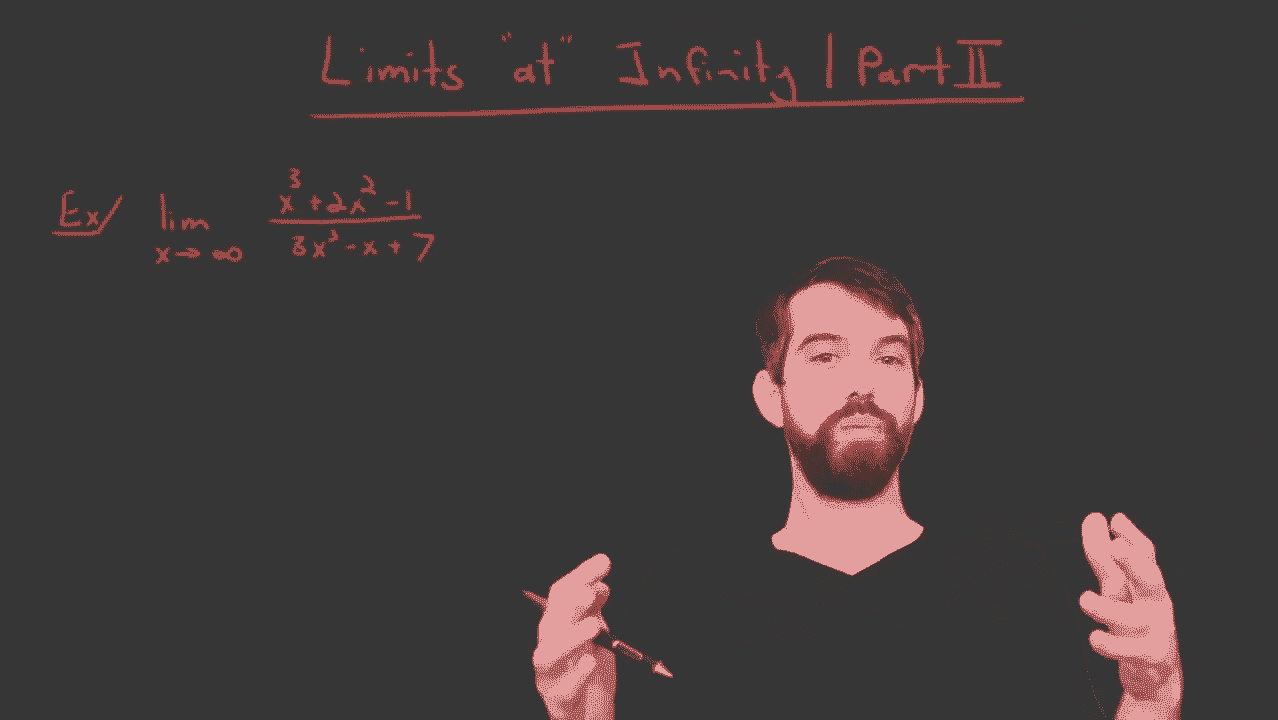 Limits "at" Infinity | Part II
Ex/ lim x→∞ x³+2x²-1
3x³-x+7